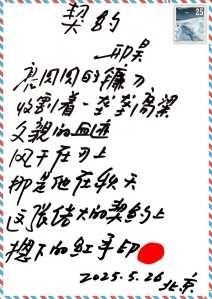 契约
—耶昊
亮闪闪的镰刀
收割着一垄垄高粱
父亲的血迹
风干在刃上
那是他在秋天
这张偌大的契约上
摁下的红手印
2025.5.26 北京
25